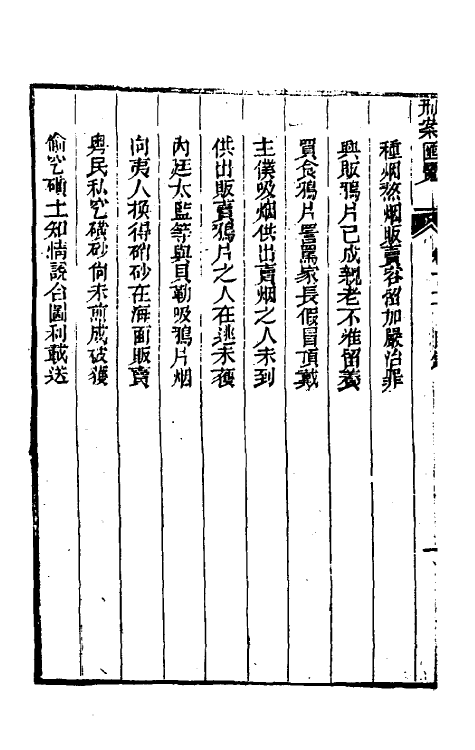 刑案匯覽
種烟煞烟販賣容留加嚴治罪
興販鴉片已成親老不准留養
買食鴉片詈罵家長假冒頂戴
主僕吸烟供出賣烟之人未到
供出販賣鴉片之人在逃未獲
內廷太監等與貝勒吸鴉片烟
向夷人換得硝砂在海面販賣
粵民私挖磺砂尙未煎成破獲
偷挖磺土知情說合圖利載送